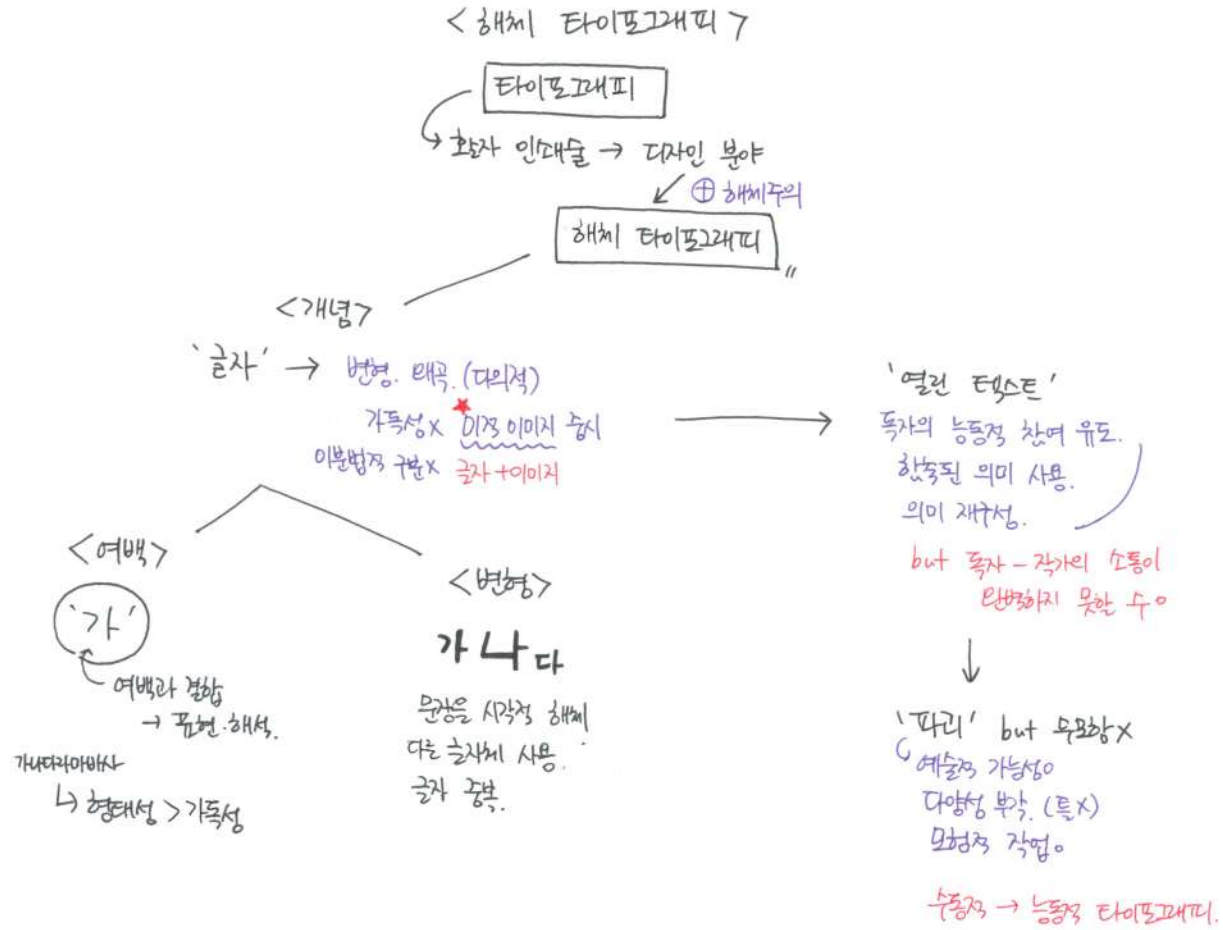 <해체 타이포그래피>
타이포그래피
활자 인쇄술 → 디자인 분야
⊕ 해체주의
해체 타이포그래피 〃
<개념>
'글자' → 변형. 왜곡. (다의적)
가독성x 미적 이미지 중시
이분법적 구분x 글자+이미지
<여백>
'가'
여백과 결합
→ 표현·해석.
가나다라마바사
↳ 형태성 > 가독성
<변형>
가 나 다
문장을 시각적 해체
다른 글자체 사용.
글자 중복.
'열린 텍스트'
독자의 능동적 참여 유도.
함축된 의미 사용.
의미 재구성.
but 독자 - 작가의 소통이
완벽하지 못할 수 o
'파괴' but 무모함x
예술적 가능성o
다양성 부각. (틀x)
모험적 작업o
수동적 → 능동적 타이포그래피.